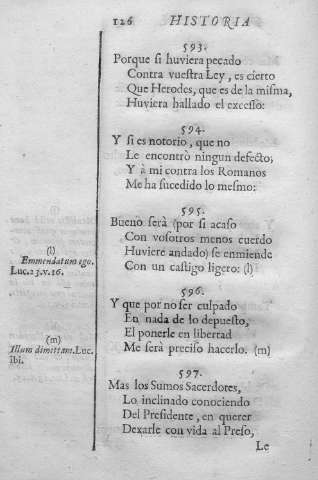 126 HISTORIA
593.
Porque si huviera pecado
Contra vuestra Ley, es cierto
Que Herodes, que es de la misma,
Huviera hallado el excesso:
594.
Y si es notorio, que no
Le encontrò ningun defecto;
Y à mi contra los Romanos
Me ha sucedido lo mesmo:
595.
Bueno serà (por si acaso
Con vosotros menos cuerdo
Huviere andado) se enmiende
Con un castigo ligero: (l)
(l)
Emmendatum ego.
Luc.23.v.16.
596.
Y que por no ser culpado
En nada de lo depuesto,
El ponerle en libertad
Me serà preciso hacerlo. (m)
(m)
Illum dimettam. Luc.
ibi.
597.
Mas los Sumos Sacerdotes,
Lo inclinado conociendo
Del Presidente, en querer
Dexarle con vida al Preso,
Le